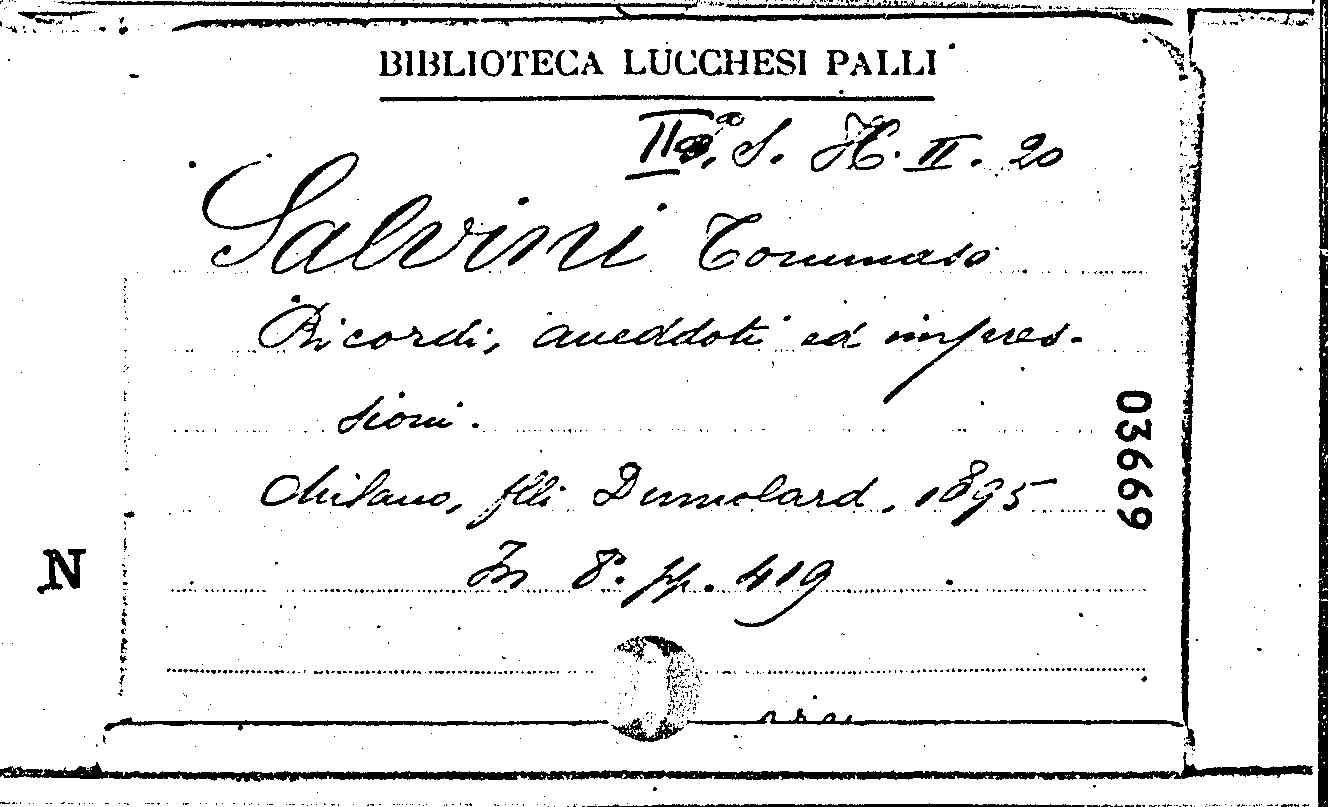 BIBLIOTECA LUCCHESI PALLI
IIa. S. H. II. 20
Salvini Tommaso
Ricordi, aneddoti ed impres-
sioni.
Milano, flli Dumolard, 1895
In 8°. pp. 419
03669
N